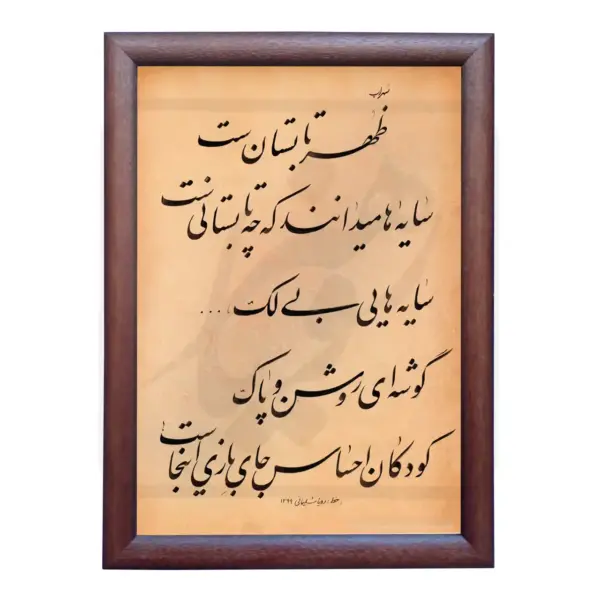 سهراب
ظهر تابستان ست
سایه ها میدانند که چه تابستانی ست
سایه هایی بی لک ....
گوشه ای روشن و پاک
کودکان احساس جای بازی اینجاست
خط: سلیمانی ۱۳۹۹